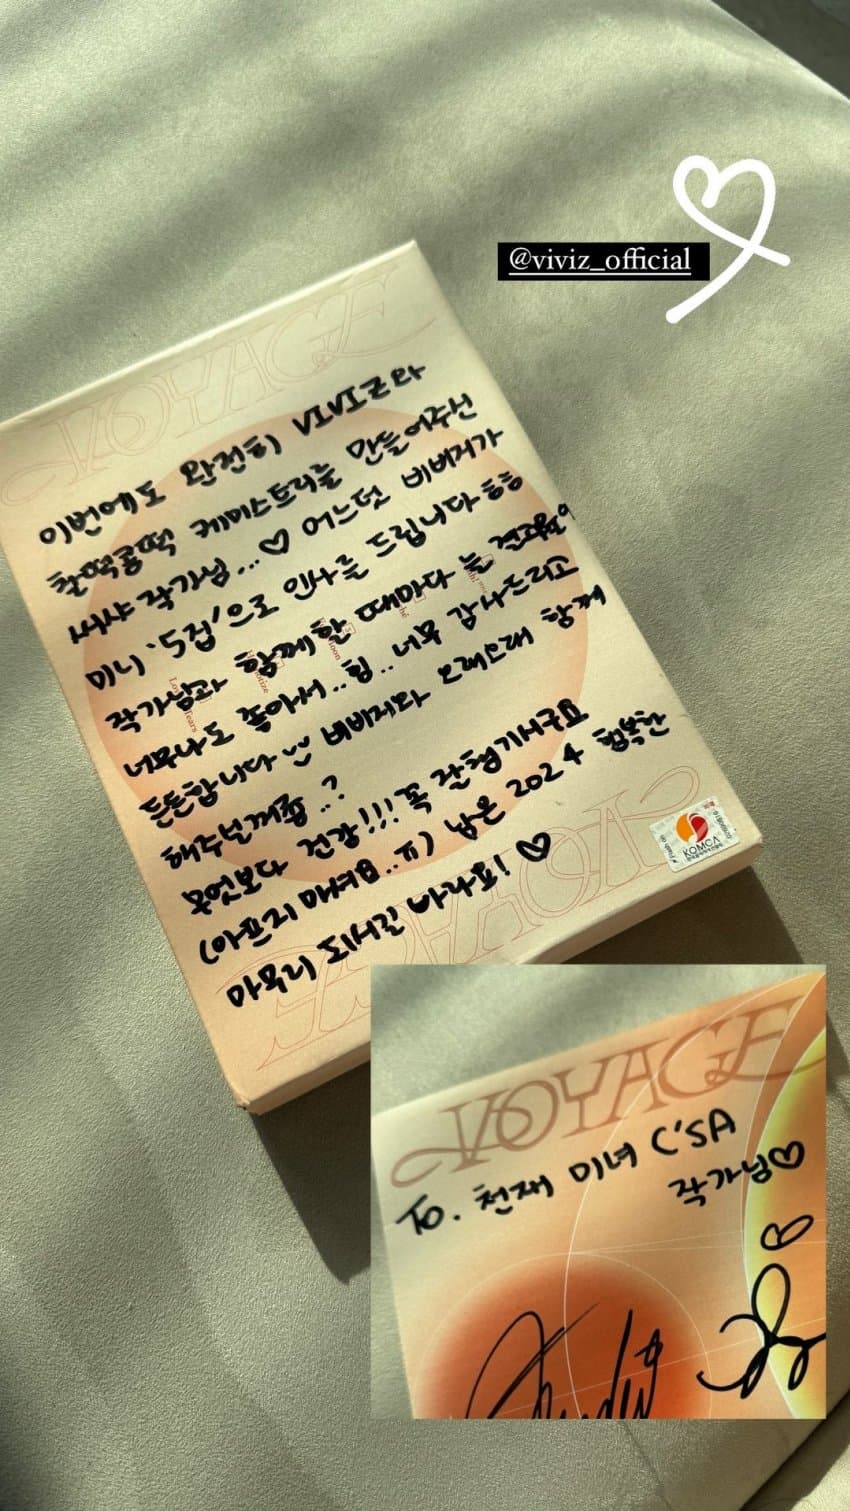 @viviz_official
VOYAGE
이번에도 완전히 VIVIZ와
찰떡콩떡 케미스트리를 만들어주신
써샤 작가님...♡ 어느덧 비비지가
미니 '5집'으로 인사를 드립니다 ㅎㅎ
작가님과 함께할 때마다 늘
너무나도 좋아서..힘..너무 감사드리고
든든합니다 비비지와 오래오래 함께
해주실꺼죵..?
무엇보다 건강!!! 꼭 잘 챙기시구요
(아프지 마셔요..ㅠ) 남은 2024 행복한
마무리 되시길 바라요! ♡
VOYAGE
KOMCA
VOYAGE
To. 천재 미녀 C'SA
작가님♡